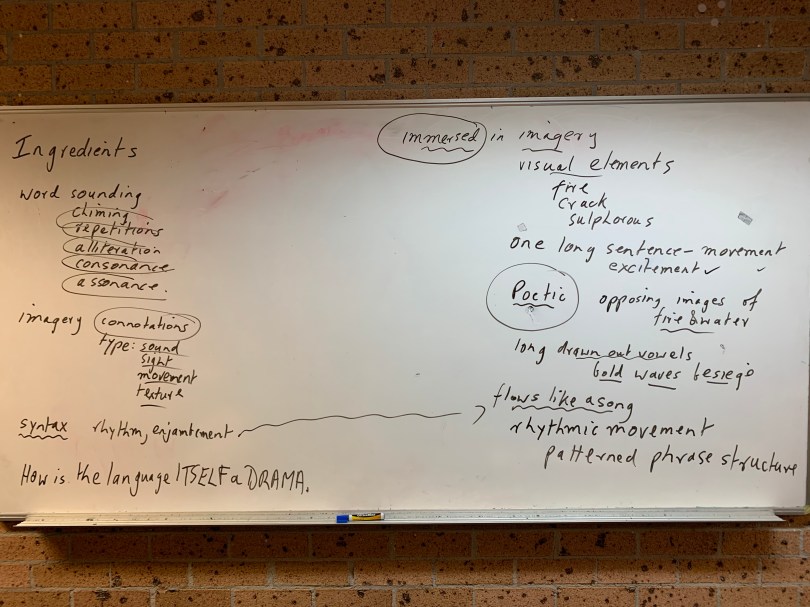 Ingredients
word sounding
chiming
repetitions
alliteration
consonance
assonance.
imagery connotations
type: sound
sight
movement
texture
syntax rhythm, enjambement.
How is the language ITSELF a DRAMA.
immersed in imagery
visual elements
fire
crack
sulphorous
one long sentence - movement
excitement ✓ ✓
Poetic opposing images of
fire & water
long drawn out vowels
bold waves besiege
flows like a song
rhythmic movement
patterned phrase structure